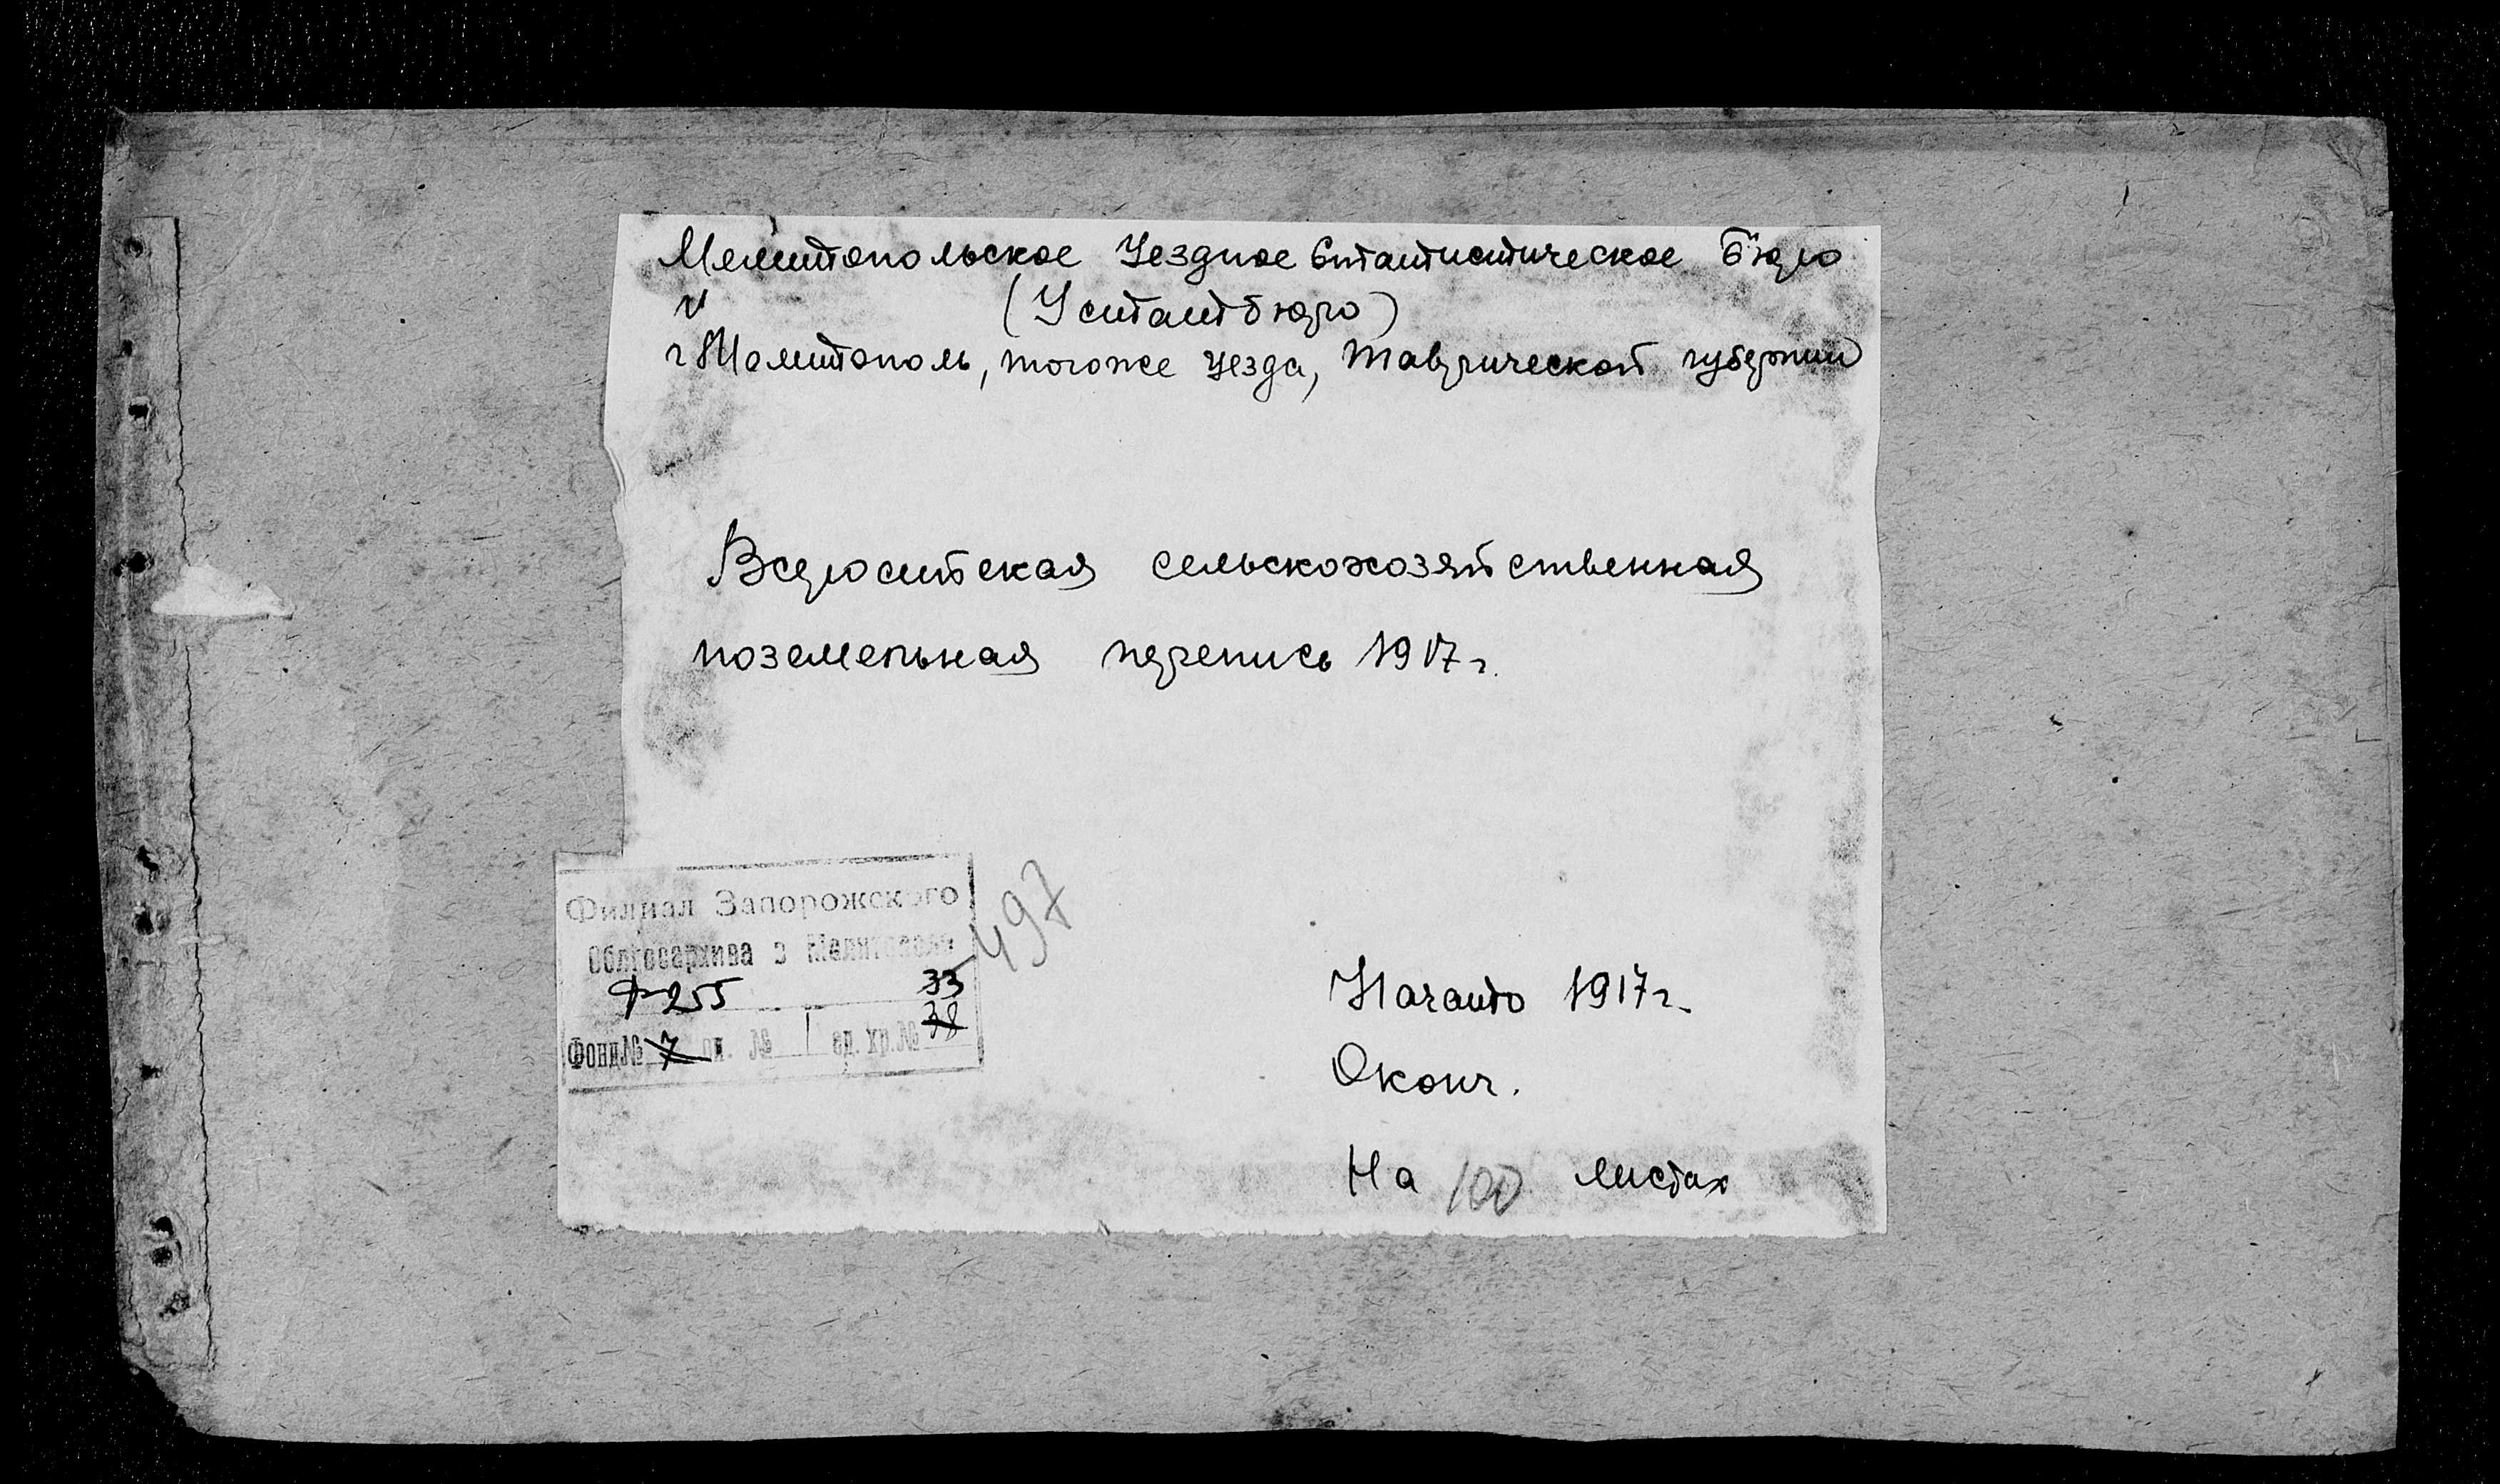 Мелитопольское Уездное Статистическое Бюро
(Устатбюро)
г Мелитополь, тогоже уезда, Таврической губернии
Всероссийская сельскохозяйственная
поземельная перепись 1917 г.
Филиал Запорожского
Облгосархива в Мелитополе
497
Ф-255 33
38
Фонд № 7 оп. № 1 ед. хр. №
Начато 1917 г.
Оконч.
На 100 листах